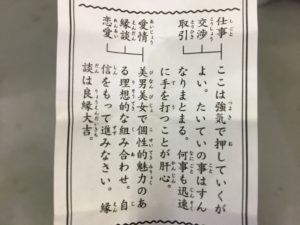 仕事
交渉
取引
ここは強気で押していくが
よい。たいていの事はすん
なりまとまる。何事も迅速
に手を打つことが肝心。
愛情
縁談
恋愛
美男美女で個性的魅力のあ
る理想的な組み合わせ。自
信をもって進みなさい。縁
談は良縁大吉。